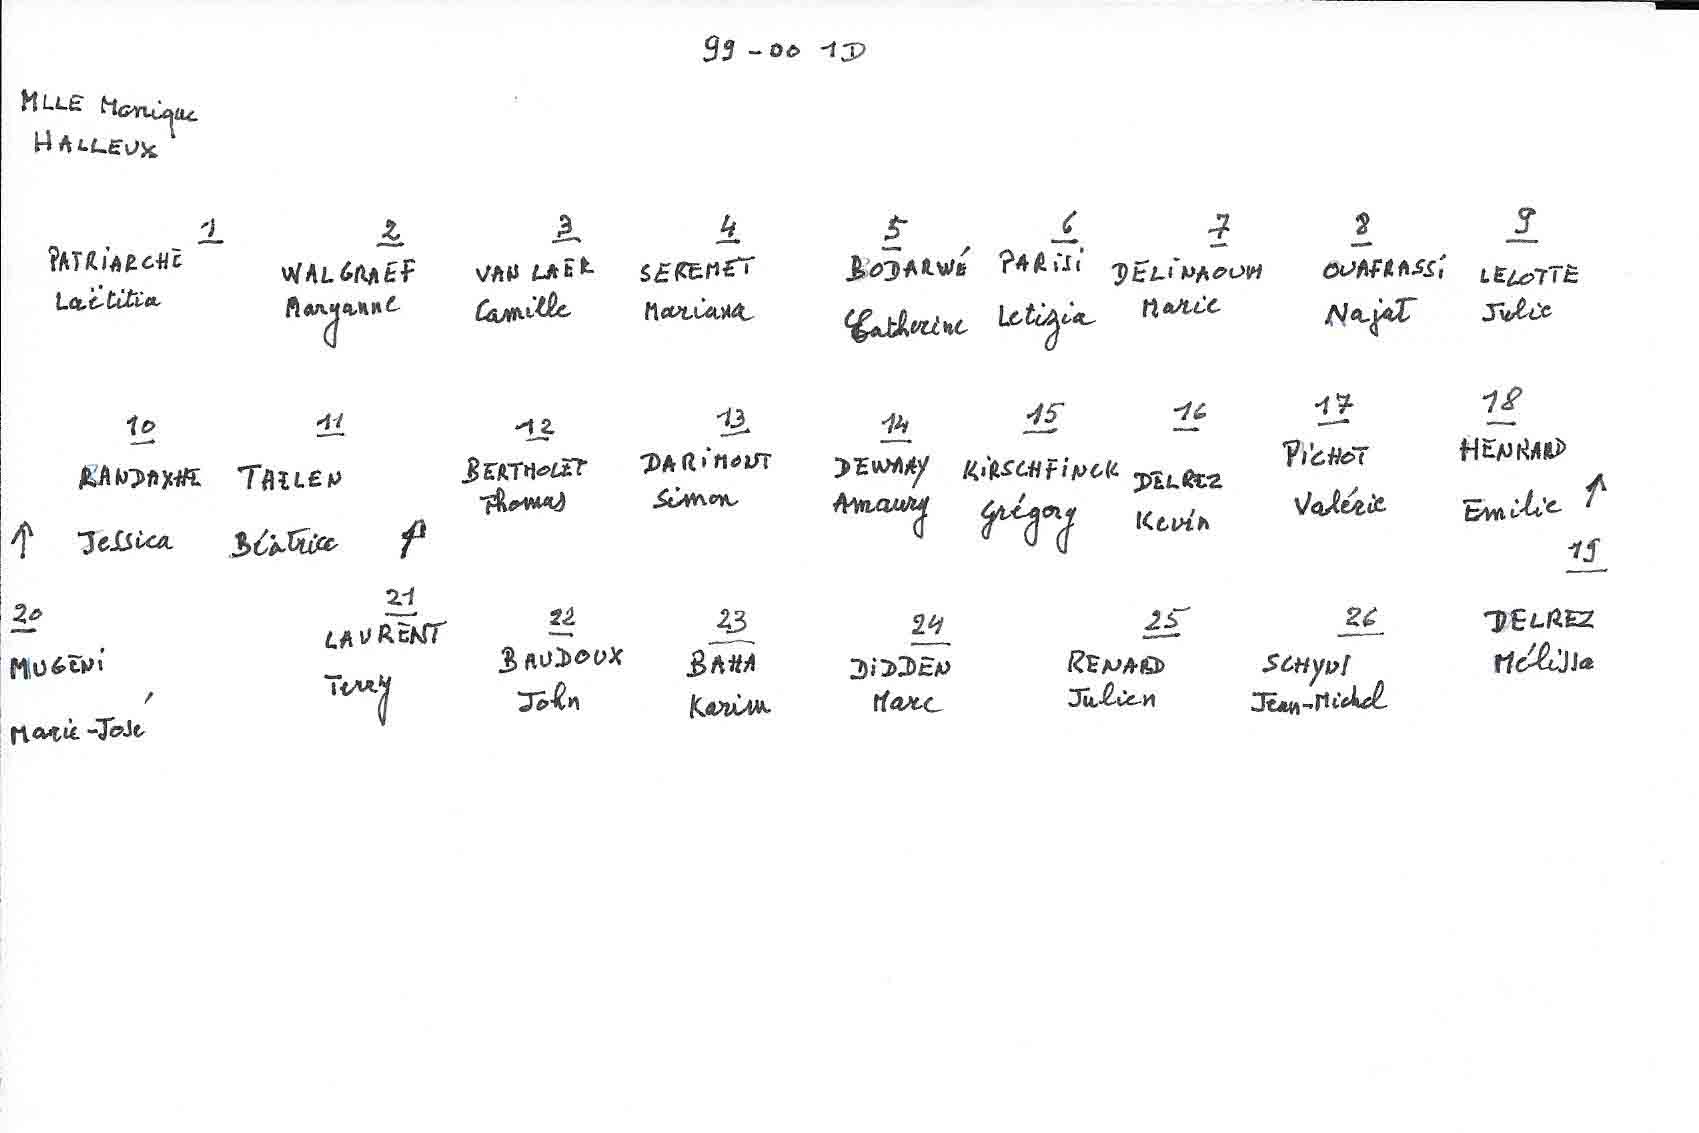 99-00 1D
MLLE Monique
HALLEUX
1 2 3 4 5 6 7 8 9
PATRIARCHE WALGRAEF VAN LAER SEREMET BODARWÉ PARISI DELINAOUM OUAFRASSI LELOTTE
Laëtitia Maryanne Camille Mariana Catherine Letizia Marie Najat Julie
10 11 12 13 14 15 16 17 18
RANDAXHE TAELEN BERTHOLET DARIMONT DEWAAY KIRSCHFINCK DELREZ PICHOT HENRARD
↑ Jessica Béatrice ↑ Thomas Simon Amaury Grégory Kevin Valérie Emilie ↑
19
20 21 22 23 24 25 26
MUGENI LAURENT BAUDOUX BAHA DIDDEN RENARD SCHYNS DELREZ
Marie-José Terry John Karim Marc Julien Jean-Michel Mélissa